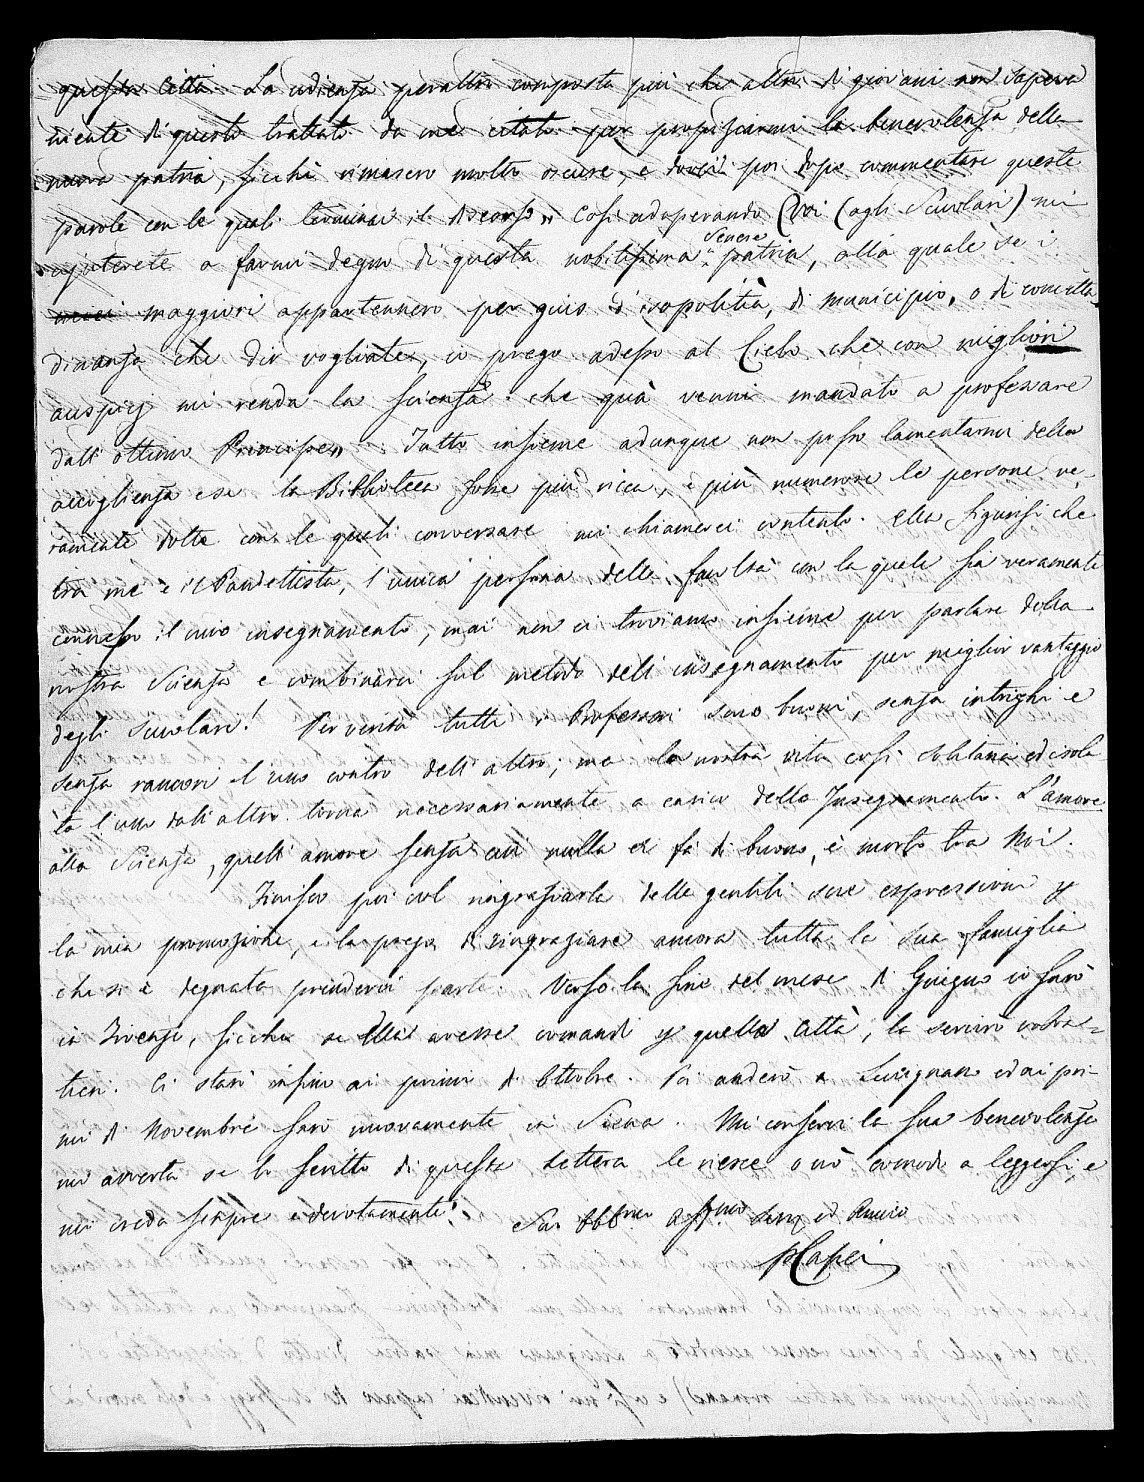 questa Città. La udienza peraltro composta più che altro di giovani non sapeva
niente di questo trattato da me citato per propiziarmi la benevolenza della
nuova patria, sicchè rimasero molto oscure, e dovei poi dopo commentare queste
parole con le quali terminai il discorso „ Così adoperando (Voi (agli Scuolari) mi
ajuterete a farmi degno di questa nobilissima Senese patria, alla quale se i
miei maggiori appartennero per gius d'isopolitia, di municipio, o di concitta
dinanza che dir vogliate, io prego adesso al Cielo che con migliori
auspicj mi renda la scienza che quà venni mandato a professare
dall'ottimo Principe„. Tutto insieme adunque non posso lamentarmi della
accoglienza e se la Biblioteca fosse più ricca, e più numerose le persone ve-
ramente dotte con le quali conversare mi chiamerei contento. Ella figurisi che
tra me e il Pandettista, l'unica persona della facoltà con la quale sia veramente
connesso il mio insegnamento, mai non ci troviamo insieme per parlare della
nostra Scienza e combinarci sul metodo dell'insegnamento per miglior vantaggio
degli Scuolari! Per verità tutti i Professori sono buoni, senza intrighi e
senza rancori l'uno contro dell'altro; ma la nostra vita così solitaria ed isola
ta l'uno dall'altro torna necessariamente a carico dello Insegnamento. L'amore
alla Scienza, quell'amore senza cui nulla si fa di buono, è morto tra Noi.
Finisco poi col ringraziarla delle gentili sue espressioni p
la mia promozione, e la prego di ringraziare ancora tutta la Sua famiglia
che si è degnata prendervi parte. Verso la fine del mese di Giugno io sarò
in Firenze, sicchè se Ella avesse comandi p quella Città, la servirò volen=
tieri. Ci starò infino ai primi di Ottobre. Poi anderò a Lucignano ed ai pri-
mi di Novembre sarò nuovamente in Siena. Mi conservi la sua benevolenza
mi avverta se lo scritto di questa lettera le riesce o nò comodo a leggersi, e
mi creda sempre e devotamente
Suo Obbmo Affmo Serv ed Amico
PCapei